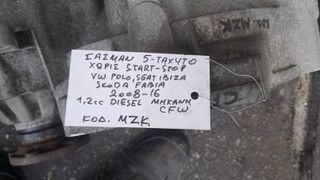 MZK
ΣΑΖΜΑΝ 5-ΤΑΧΥΤΟ
ΧΩΡΙΣ START-STOP
VW POLO, SEAT IBIZA
SKODA FABIA
2008-16
1,2cc DIESEL ΜΗΧΑΝΗ
CFW
ΚΩΔ. MZK